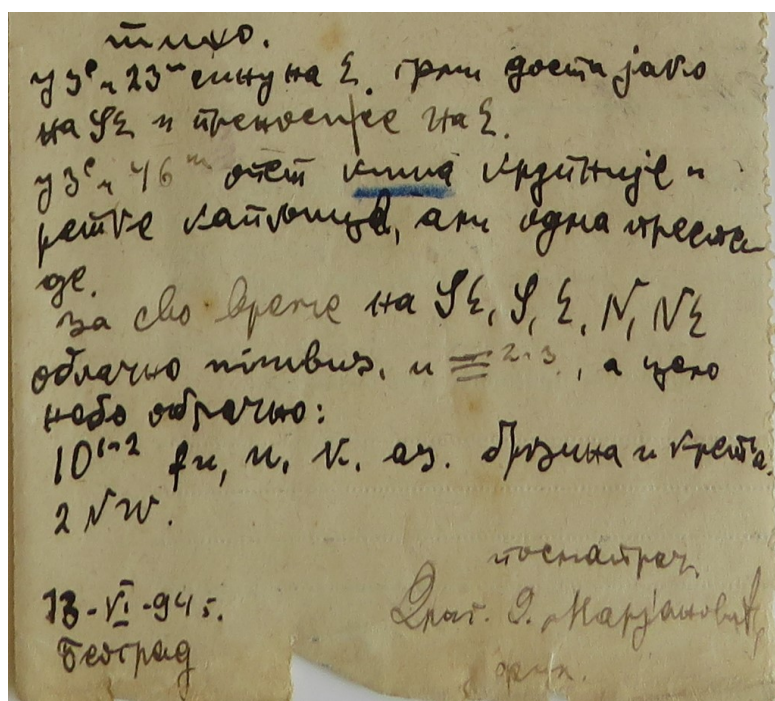 тихо.
у 3ᶜ и 23ᵐ сину на Σ. грми доста јако
на SΣ и преноси се на Σ.
у 3ᶜ и 46ᵐ опет киша крупније и
ретке капљице, али одма преста-
де.
За сво време на SΣ, S, Σ, N, NΣ
облачно nimbus. и ≡²·³·, а цело
небо облачно:
10¹⁻² fn, n, к. as. брзина и крета.
2 NW.
посматрач,
13-VI-94 г.
Драг. Марјановић,
Београд